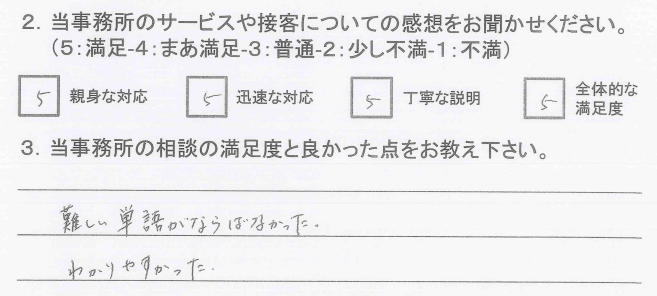 2. 当事務所のサービスや接客についての感想をお聞かせください。
(5:満足-4:まあ満足-3:普通-2:少し不満-1:不満)
5 親身な対応 5 迅速な対応 5 丁寧な説明 5 全体的な満足度
3. 当事務所の相談の満足度と良かった点をお教え下さい。
難しい単語がならばなかった。
わかりやすかった。